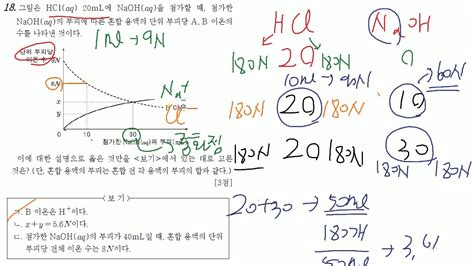 18. 그림은 HCl(aq) 20mL에 NaOH(aq)을 첨가할 때, 첨가한
NaOH(aq)의 부피에 따른 혼합 용액의 단위 부피당 A, B 이온의
수를 나타낸 것이다.
1ml → 9N
단위 부피당
이온 수
6N
x
y
Na+
0 10 30
첨가한 NaOH(aq)의 부피
중화점
이에 대한 설명으로 옳은 것만을 <보기>에서 있는 대로 고른
것은? (단, 혼합 용액의 부피는 혼합 전 각 용액의 부피의 합과 같다.)
[3점]
<보 기>
ㄱ. B 이온은 H+이다.
ㄴ. x+y=5.6N이다.
ㄷ. 첨가한 NaOH(aq)의 부피가 40mL일 때, 혼합 용액의 단위
부피당 전체 이온 수는 8N이다.
HCl NaOH
180N 20 180N 0
10ml → 90N
60N
180N 20 180N 10
180N 20 180N 30
20+30 → 50ml
180개
50ml
→ 3.6